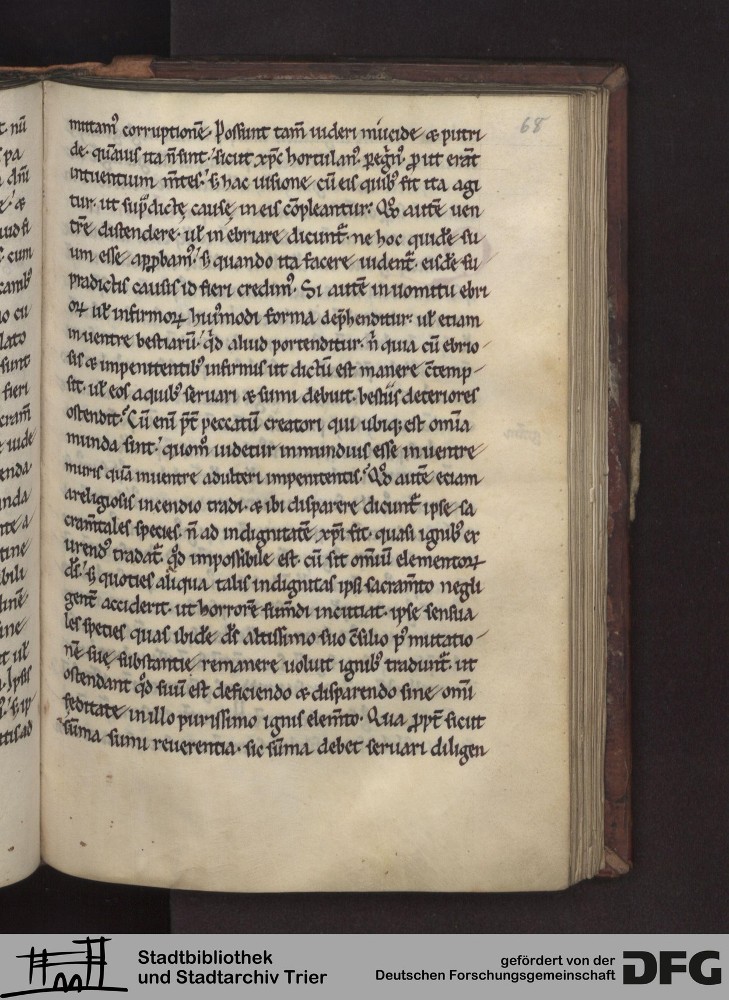 68
mittam᷒ corruptionē. Possunt tam̄ uideri mucide & putri
de. quāuis ita n̄ sint. sicut xp̄c hortulan᷒ peg̃n᷒ ꝓ ut erāt
intuentium m̄tes. s; hac uisione cū eis quib᷒ fit ita agi
tur. ut sup̄dictę causę in eis cōpleantur. Qd̄ autē uen
trē distendere. ul̄ inebriare dicunt̄. ne hoc quidē su
um esse apꝓbam᷒. s; quando ita facere uident̄. eisdē su
pradictis causis id fieri credim᷒. Si autē in uomitu ebri
oꝝ ul̄ infirmoꝝ hui᷒modi forma dep̄henditur. ul̄ etiam
in uentre bestiarū. qd̄ aliud portenditur. n̄ quia cū ebrio
sis & impenitentib᷒ infirmis ut dictū est manere c̄temp
sit. ul̄ eos a quib᷒ seruari & sumi debuit. bestiis deteriores
ostendit. Cū enī p̄t peccatū creatori qui ubiq; est omīa
munda sint. quom᷒ uidetur inmundius esse in uentre
muris quā in uentre adulteri impenitentis. Qd̄ autē etiam
a religiosis incendio tradi. & ibi disparere dicunt̄ ipse sa
cram̄tales species. n̄ ad indignitatē xp̄i fit. quasi ignib᷒ ex
urend᷒ tradat̄. qd̄ impossibile est. cū sit omiū elementoꝝ
ds̄. s; quoties aliqua talis indignitas ipsi sacram̄to negli
gent̄ acciderit. ut horrorē sum̄di incutiat. ipse sensua
les species quas ibidē ds̄ altissimo suo c̄silio p᷒ mutatio
nē suę substantię remanere uoluit ignib᷒ tradunt̄. ut
ostendant qd̄ suū est deficiendo & disparendo sine omī
feditate in illo purissimo ignis elem̄to. Qua ꝓpt̄ sicut
sūma sumi reuerentia. sic sūma debet seruari diligen
Stadtbibliothek
und Stadtarchiv Trier
gefördert von der
Deutschen Forschungsgemeinschaft
DFG